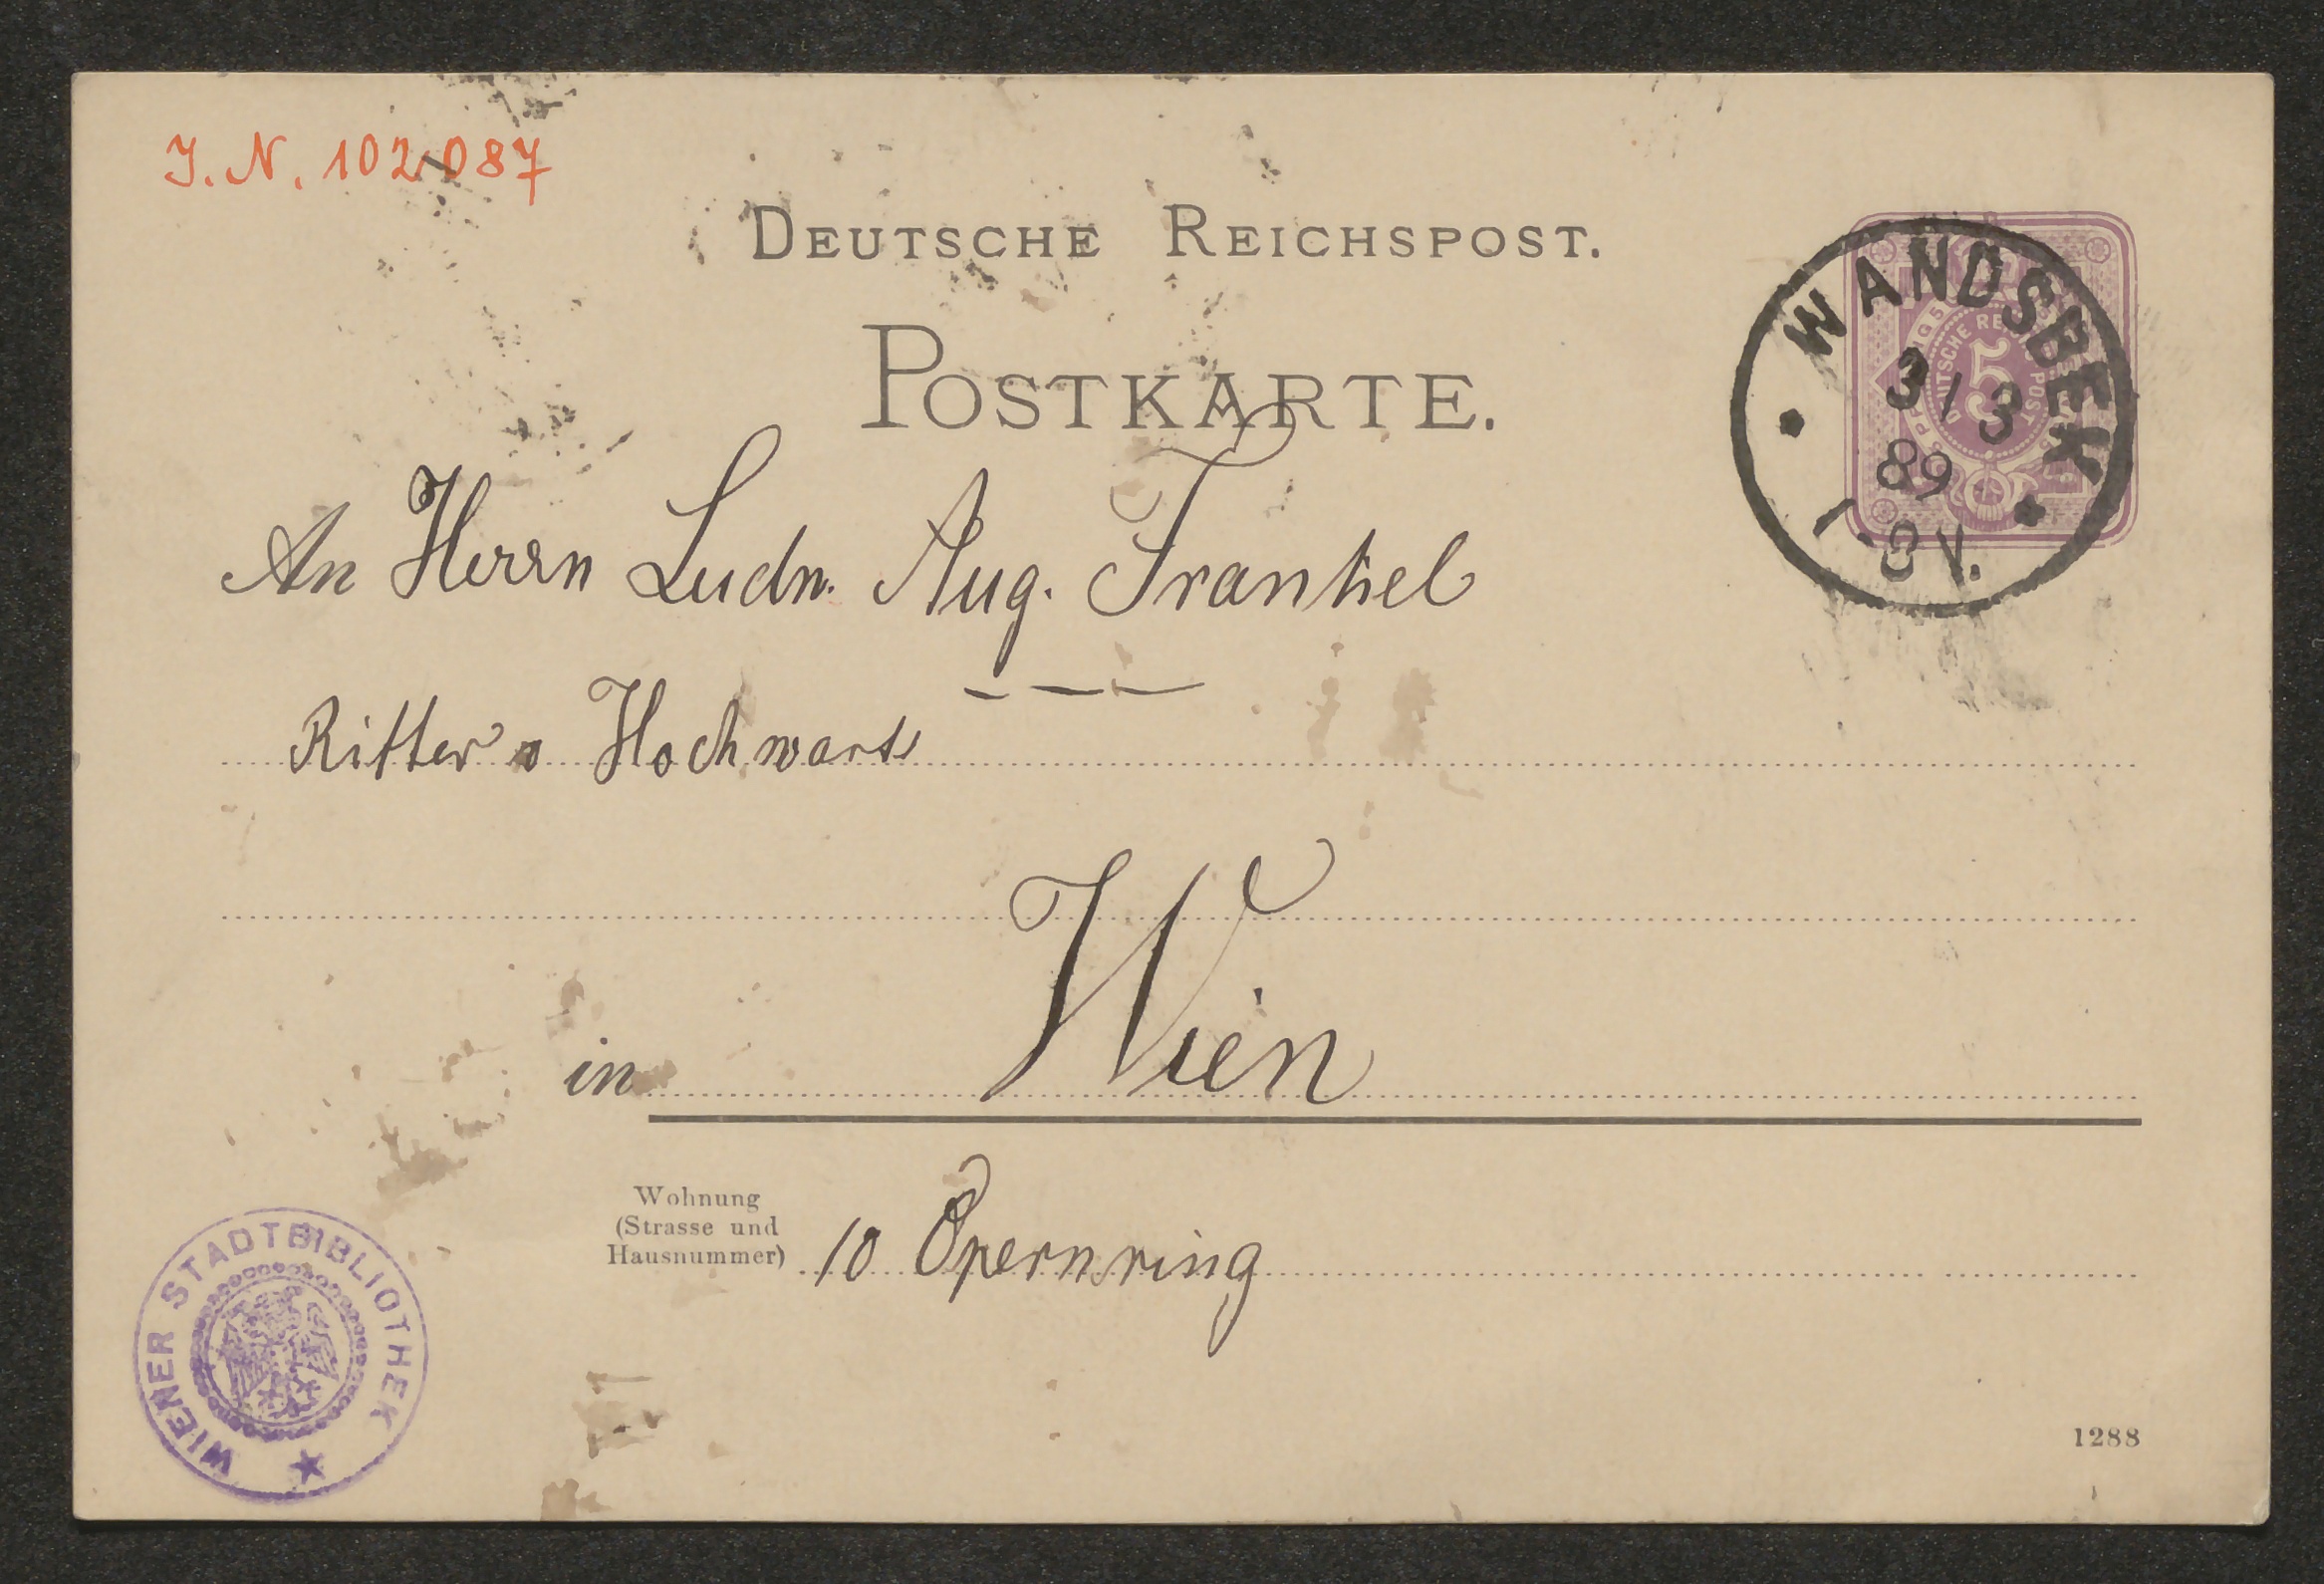 J. N. 102087
DEUTSCHE REICHSPOST.
POSTKARTE.
WANDSBEK
3/3
89
1-8V.
DEUTSCHE REICHSPOST
5
An Herrn Ludw. Aug. Frankel
Ritter v Hochwart
in Wien
Wohnung
(Strasse und
Hausnummer) 10 Opernring
WIENER STADTBIBLIOTHEK
1288